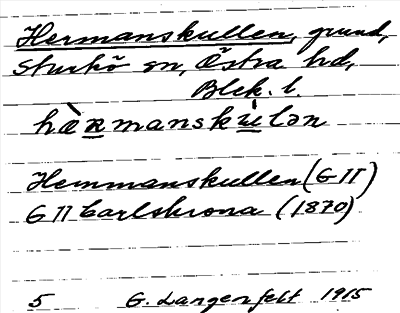 Hermanskullen, grund,
Sturkö sn, Östra hd,
Blek. l.
hæ̀ʀmanskùlən
Hemmanskullen (G II)
G II Carlskrona (1870)
5 G. Langenfelt 1915